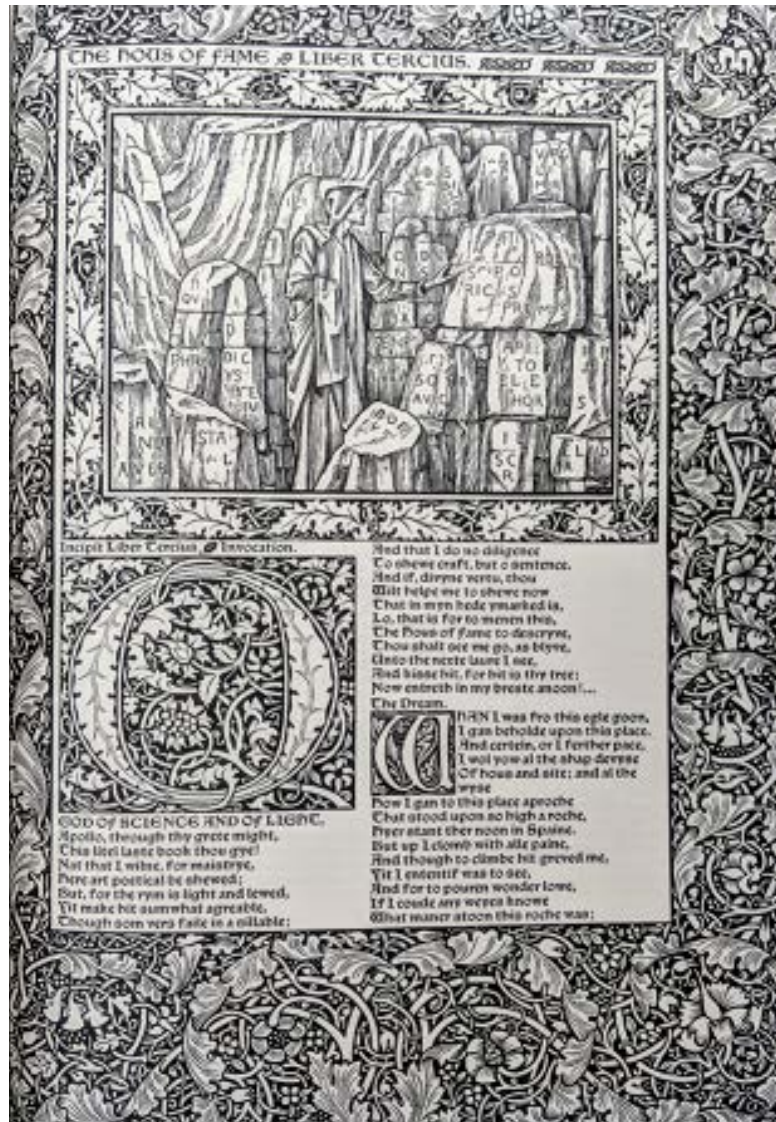 THE HOUS OF FAME LIBER TERCIUS.
Incipit Liber Tercius Invocation.
O
GOD OF SCIENCE AND OF LIGHT,
Apollo, through thy grete might,
This litel laste book thou gye!
Nat that I wilne, for maistrye,
Here art poetical be shewed;
But, for the rym is light and lewed,
Yit make hit sumwhat agreable,
Though som vers faile in a sillable;
And that I do no diligence
To shewe craft, but o sentence.
And if, divyne vertu, thou
Wilt helpe me to shewe now
That in myn hede ymarked is,
Lo, that is for to menen this,
The Hous of Fame to descryve,
Thou shalt see me go, as blyve,
Unto the nexte laure I see,
And kisse hit, for hit is thy tree;
Now entreth in my breste anoon!...
The Dream.
WHAN I was fro this egle goon,
I gan beholde upon this place.
And certein, or I ferther pace,
I wol yow al the shap devyse
Of hous and site; and al the
wyse
How I gan to this place aproche
That stood upon so high a roche,
Hyer stant ther noon in Spaine.
But up I clomb with alle paine,
And though to climbe hit greved me,
Yit I ententif was to see,
And for to pouren wonder lowe,
If I coude any weyes knowe
What maner stoon this roche was;